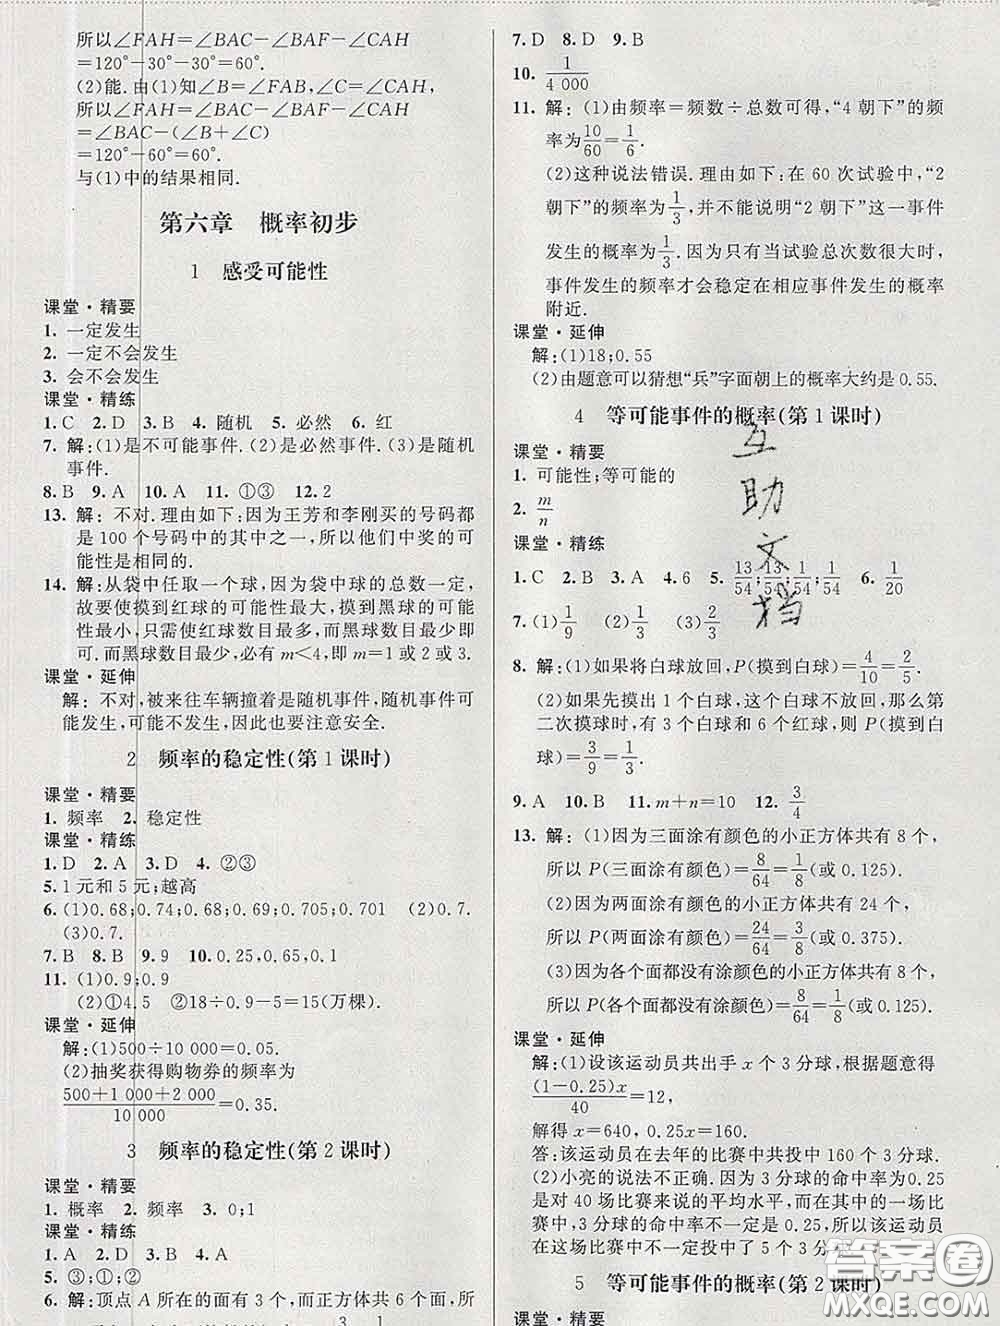 所以∠FAH=∠BAC-∠BAF-∠CAH
=120°-30°-30°=60°.
(2)能.由(1)知∠B=∠FAB,∠C=∠CAH,
所以∠FAH=∠BAC-∠BAF-∠CAH
=∠BAC-(∠B+∠C)
=120°-60°=60°.
与(1)中的结果相同.
第六章 概率初步
1 感受可能性
课堂·精要
1. 一定发生
2. 一定不会发生
3. 会不会发生
课堂·精练
1. C 2. D 3. B 4. 随机 5. 必然 6. 红
7. 解:(1)是不可能事件.(2)是必然事件.(3)是随机
事件.
8. B 9. A 10. A 11. ①③ 12. 2
13. 解: 不对.理由如下:因为王芳和李刚买的号码都
是100个号码中的其中之一,所以他们中奖的可
能性是相同的.
14. 解:从袋中任取一个球,因为袋中球的总数一定,
故要使摸到红球的可能性最大,摸到黑球的可能
性最小,只需使红球数目最多,而黑球数目最少即
可.而黑球数目最少,必有m<4,即m=1或2或3.
课堂·延伸
解: 不对,被来往车辆撞着是随机事件,随机事件可
能发生,可能不发生,因此也要注意安全.
2 频率的稳定性(第1课时)
课堂·精要
1. 频率 2. 稳定性
课堂·精练
1. D 2. A 3. D 4. ②③
5. 1元和5元;越高
6. (1)0.68;0.74;0.68;0.69;0.705;0.701 (2)0.7.
(3)0.7.
7. B 8. B 9. 9 10. 0.25,0.65,0.1
11. (1)0.9;0.9
(2)①4.5 ②18÷0.9-5=15(万棵).
课堂·延伸
解:(1)500÷10 000=0.05.
(2)抽奖获得购物券的频率为
(500+1 000+2 000)/10 000=0.35.
3 频率的稳定性(第2课时)
课堂·精要
1. 概率 2. 频率 3. 0;1
课堂·精练
1. A 2. D 3. B 4. A
5. ③;①;②
6. 解:顶点A所在的面有3个,而正方体共6个面,所
7. D 8. D 9. B
10. 1/4 000
11. 解:(1)由频率=频数÷总数可得,“4朝下”的频
率为10/60=1/6.
(2)这种说法错误.理由如下:在60次试验中,“2
朝下”的频率为1/3,并不能说明“2朝下”这一事件
发生的概率为1/3.因为只有当试验总次数很大时,
事件发生的频率才会稳定在相应事件发生的概率
附近.
课堂·延伸
解:(1)18;0.55
(2)由题意可以猜想“兵”字面朝上的概率大约是0.55.
4 等可能事件的概率(第1课时)
课堂·精要
1. 可能性;等可能的
2. m/n
课堂·精练
1. C 2. B 3. A 4. 6 5. 13/54;13/54;1/54;1/54 6. 1/20
7. (1)1/9 (2)1/3 (3)2/3
8. 解:(1)如果将白球放回,P(摸到白球)=4/10=2/5.
(2)如果先摸出1个白球,这个白球不放回,那么第
二次摸球时,有3个白球和6个红球,则P(摸到白
球)=3/9=1/3.
9. A 10. B 11. m+n=10 12. 3/4
13. 解:(1)因为三面涂有颜色的小正方体共有8个,
所以P(三面涂有颜色)=8/64=1/8(或0.125).
(2)因为两面涂有颜色的小正方体共有24个,
所以P(两面涂有颜色)=24/64=3/8(或0.375).
(3)因为各个面都没有涂颜色的小正方体共有8个,
所以P(各个面都没有涂颜色)=8/64=1/8(或0.125).
课堂·延伸
解:(1)设该运动员共出手x个3分球,根据题意得
(1-0.25)x/40=12,
解得x=640,0.25x=160.
答:该运动员在去年的比赛中共投中160个3分球.
(2)小亮的说法不正确.因为3分球的命中率为0.25
是对40场比赛来说的平均水平,而在其中的一场比
赛中,3分球的命中率不一定是0.25,所以该运动员
在这场比赛中不一定投中了5个3分
5 等可能事件的概率(第2课时)
课堂·精要
互
助
文
档
答案圈
MXQE.COM